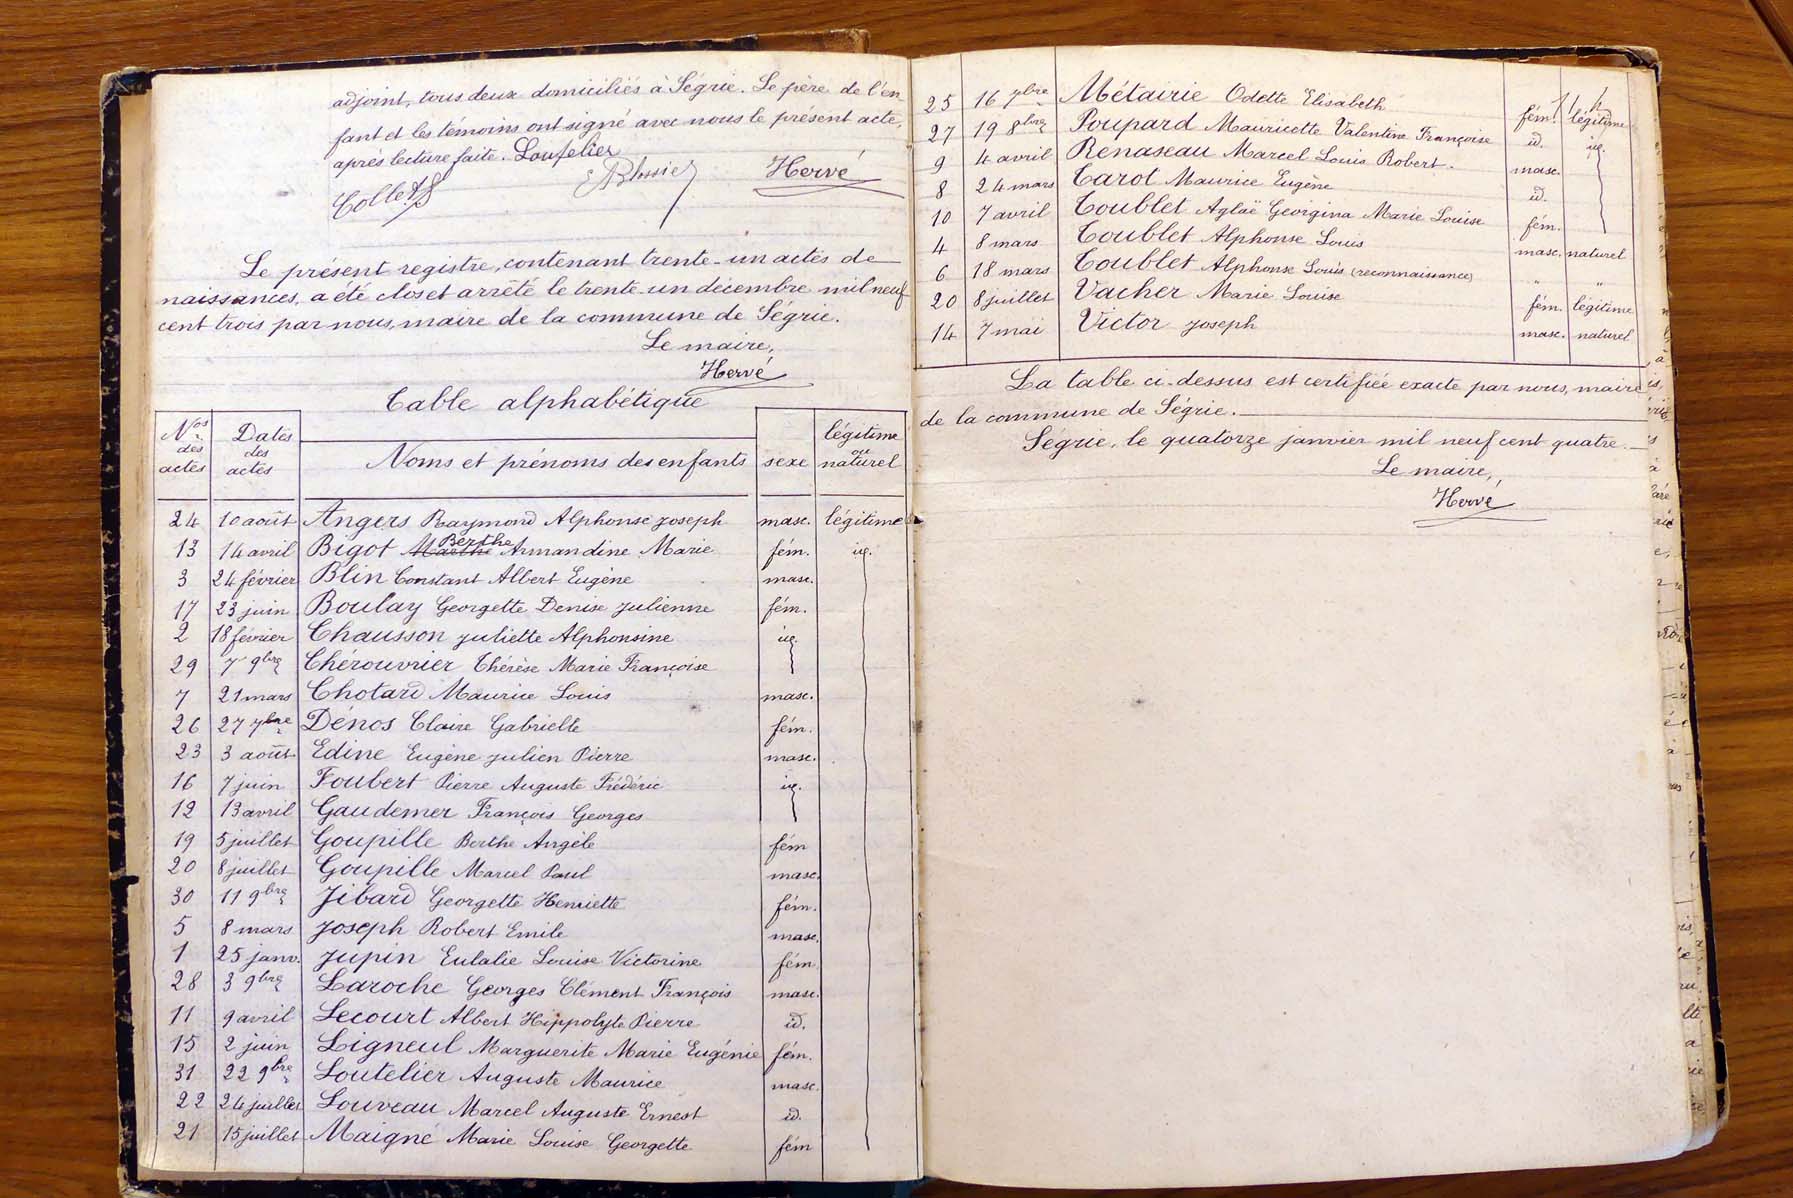 adjoint, tous deux domiciliés à Ségrie. Le père de l'en-
fant et les témoins ont signé avec nous le présent acte,
après lecture faite. Loutelier
Collet Blossier Hervé
Le présent registre, contenant trente-un actes de
naissances, a été clos et arrêté le trente-un décembre mil neuf
cent trois par nous, maire de la commune de Ségrie.
Le maire,
Hervé
Table alphabétique
Nos des actes Dates des actes Noms et prénoms des enfants sexe légitime ou naturel
24 10 août Angers Raymond Alphonse Joseph masc. légitime
13 14 avril Bigot Marthe Berthe Armandine Marie fém. id.
3 24 février Blin Constant Albert Eugène masc.
17 23 juin Boulay Georgette Denise Julienne fém.
2 18 février Chausson Juliette Alphonsine id.
29 7 9bre Chérouvrier Thérèse Marie Françoise
7 21 mars Chotard Maurice Louis masc.
26 27 7bre Dénos Claire Gabrielle fém.
23 3 août Edine Eugène Julien Pierre masc.
16 7 juin Foubert Pierre Auguste Frédéric id.
12 13 avril Gaudemer François Georges
19 5 juillet Goupille Berthe Angèle fém
20 8 juillet Goupille Marcel Paul masc.
30 11 9bre Jibard Georgette Henriette fém.
5 8 mars Joseph Robert Emile masc.
1 25 janv. Jupin Eulalie Louise Victorine fém
28 3 9bre Laroche Georges Clément François masc.
11 9 avril Lecourt Albert Hippolyte Pierre id.
15 2 juin Ligneul Marguerite Marie Eugénie fém.
31 22 9bre Loutelier Auguste Maurice masc.
22 24 juillet Louveau Marcel Auguste Ernest id.
21 15 juillet Maigné Marie Louise Georgette fém
25 16 7bre Métairie Odette Elisabeth fém. légitime
27 19 8bre Poupard Mauricette Valentine Françoise id. id.
9 4 avril Renaseau Marcel Louis Robert. masc.
8 24 mars Tarot Maurice Eugène id.
10 7 avril Toublet Aglaë Georgina Marie Louise fém.
4 8 mars Toublet Alphonse Louis masc. naturel
6 18 mars Toublet Alphonse Louis (reconnaissance) " "
20 8 juillet Vacher Marie Louise fém. légitime
14 7 mai Victor Joseph masc. naturel
La table ci-dessus est certifiée exacte par nous, maire
de la commune de Ségrie.
Ségrie, le quatorze janvier mil neuf cent quatre.
Le maire,
Hervé